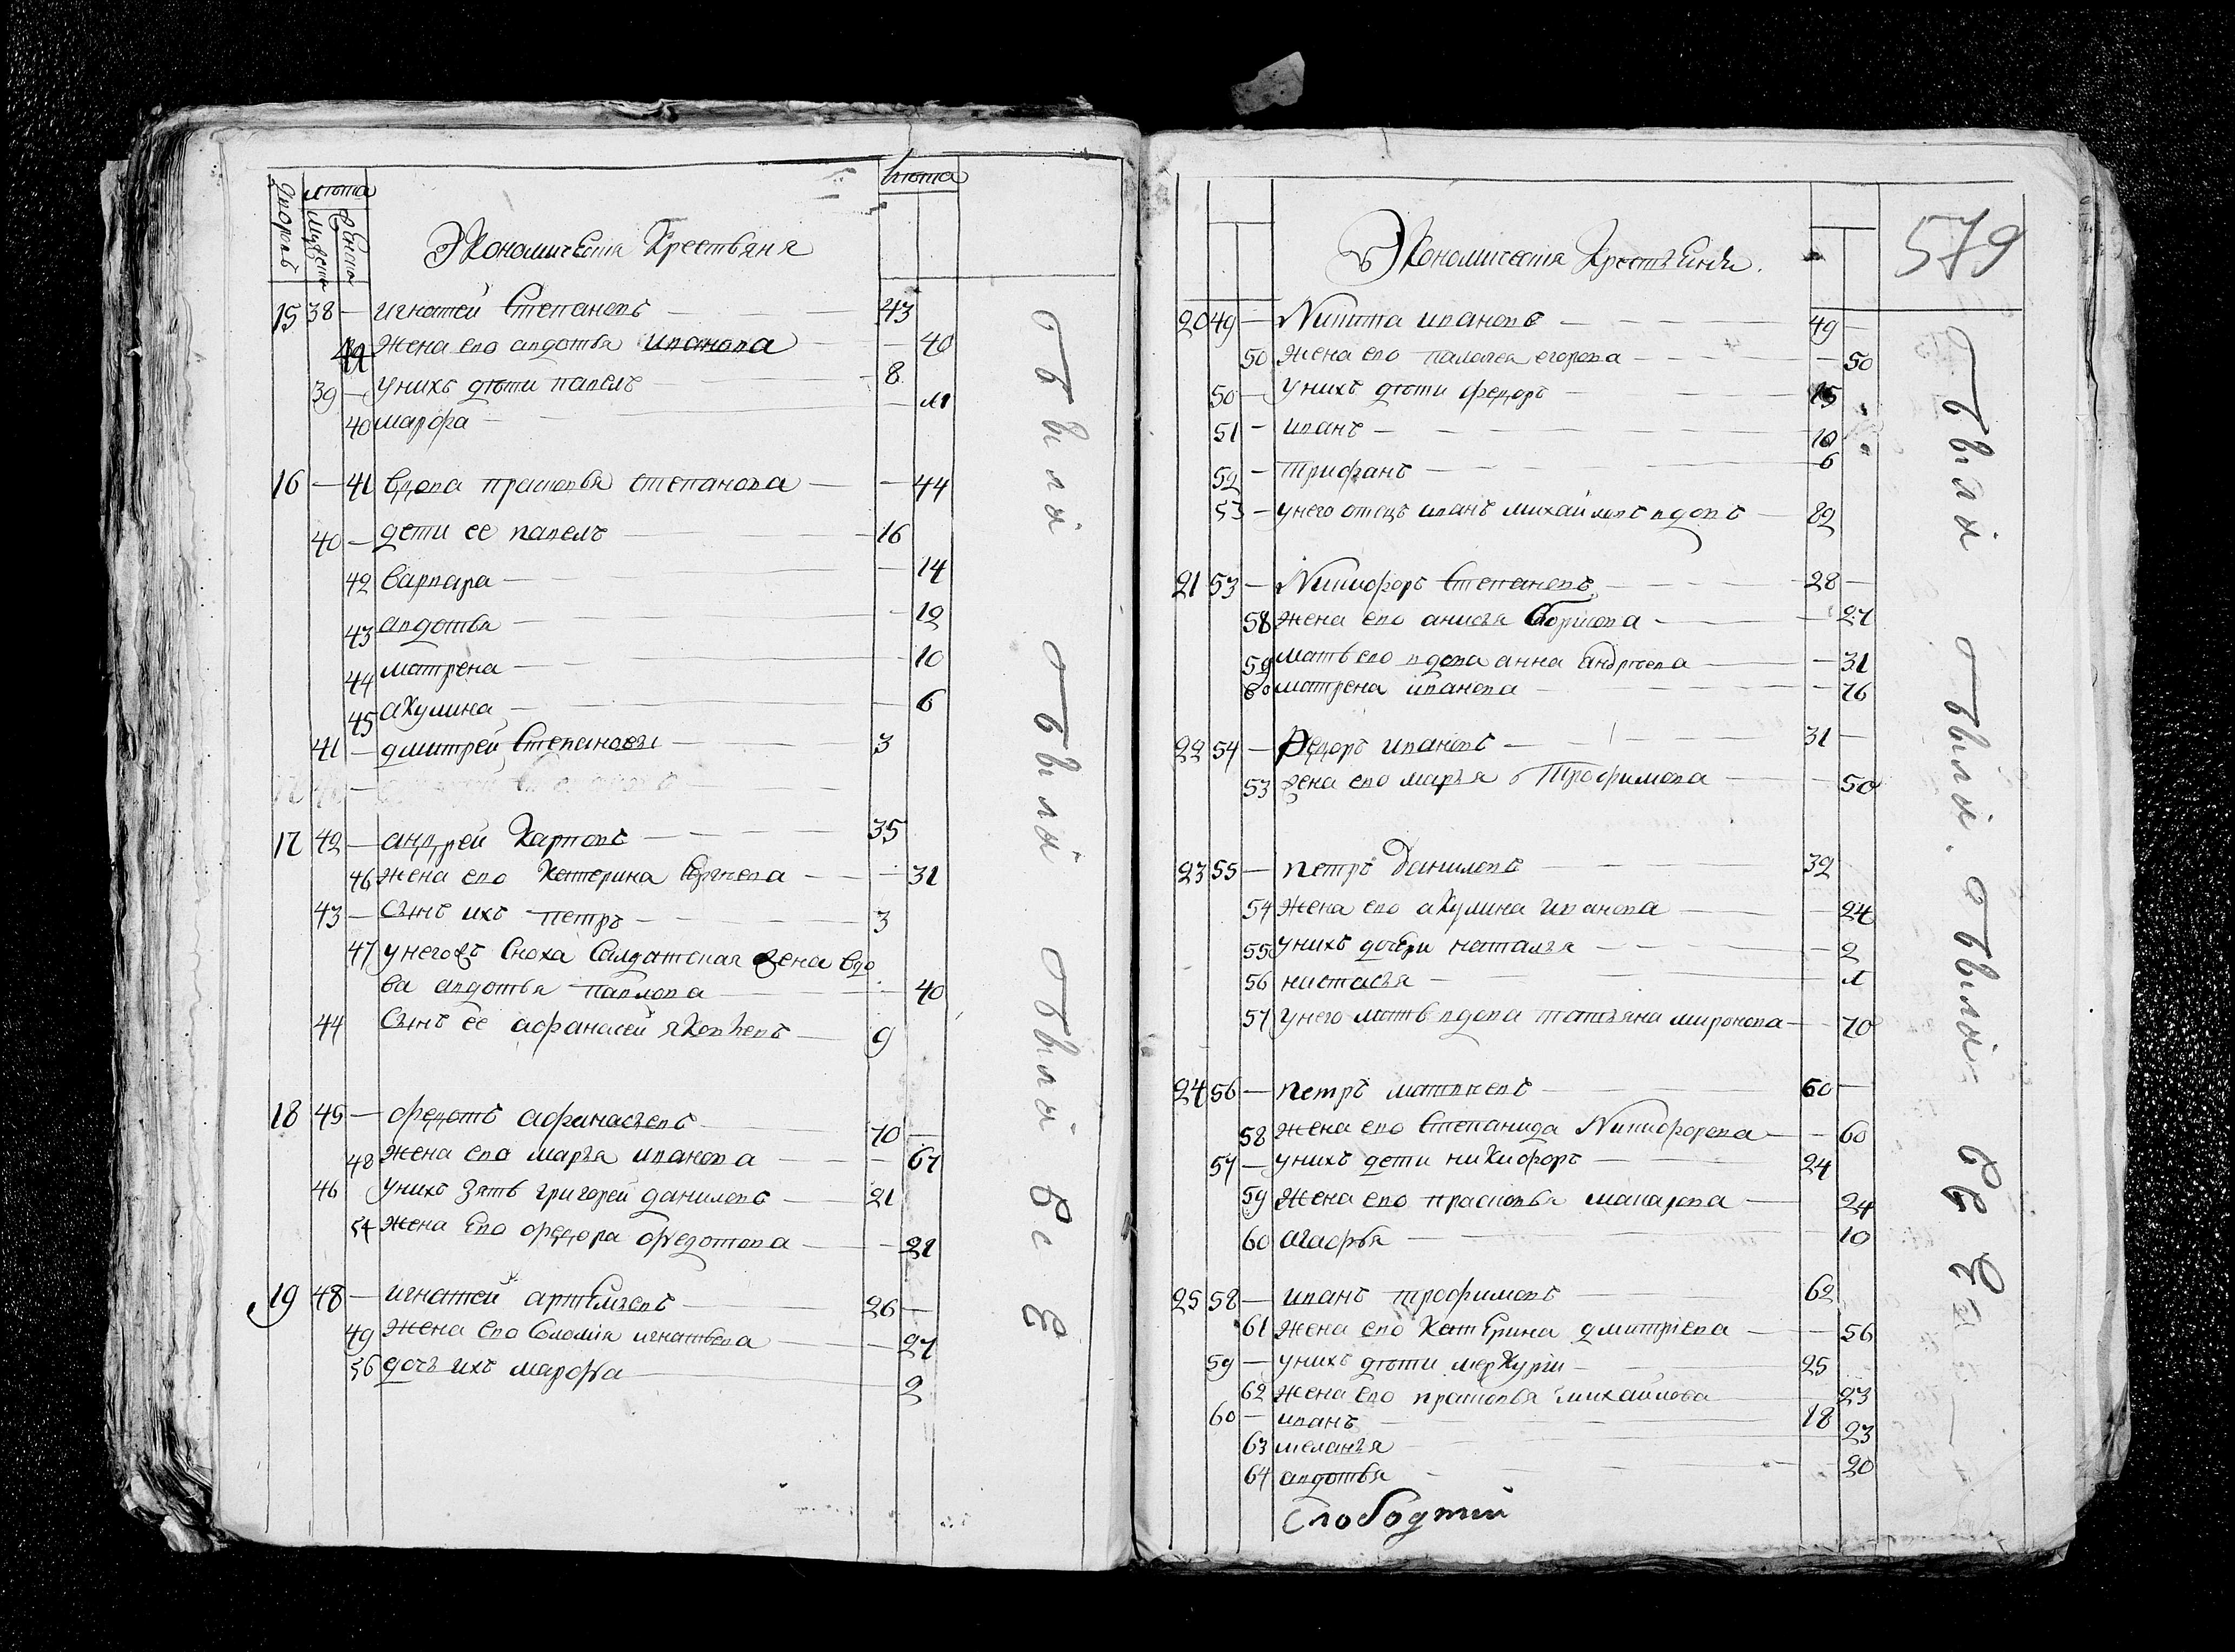 дворовъ
лѣта
мужеска
женска
лѣта
Экономическия Крестьяня
15 38 — игнатей Степановъ — 43
жена ево авдотья ивановa — 40
39 — унихъ дѣти павелъ — 8
40 марфа —
16 — 41 вдова прасковья степанова — 44
40 — дети ее павелъ — 16
42 варвара — 14
43 авдотья — 12
44 матрена — 10
45 акулина — 6
41 — дмитрей Степановъ — 3
17 42 — андрей Карповъ — 35
46 жена ево Катерина Сергѣева — 31
43 — сынъ ихъ петръ — 3
47 унегожъ сноха салдатская жена вдо
ва авдотья павлова — 40
44 сынъ ее афанасей яковлевъ — 9
18 45 — федотъ афанасьевъ — 70
48 жена ево марья иванова — 67
46 унихъ зять григорей даниловъ — 21
жена ево федора федотова — 21
19 48 — игнатей артемьевъ — 26
49 жена ево Соломія игнатьева — 27
дочь ихъ марфа — 2
были были были были все
579
Экономическия Крестьяня
20 49 — Никита ивановъ — 49
50 жена ево палагея егорова — 50
50 — унихъ дѣти федоръ — 15
51 — иванъ — 10
52 — трифанъ — 6
53 — унего отецъ иванъ михайловъ вдовъ — 82
21 53 — Никифоръ Степановъ — 28
58 жена ево анисья борисова — 27
59 мать ево вдова анна андрѣева — 31
60 матрена иванова — 76
22 54 — Федоръ ивановъ — 31
53 жена ево марья Трофимова — 50
23 55 — петръ даниловъ — 32
54 жена ево акулина иванова — 24
55 унихъ дочери наталья — 2
56 настасья —
57 унего мать вдова татьяна миронова — 70
24 56 — петръ матвеевъ — 60
58 жена ево Степанида Никифорова — 60
57 — унихъ дети никифоръ — 24
59 жена ево прасковья макарова — 24
60 агафья — 10
25 58 — иванъ трофимовъ — 62
61 жена ево Катерина дмитріева — 56
59 — унихъ дѣти меркурги — 25
62 жена ево прасковья михайлова — 23
60 — иванъ — 18
63 меланья — 23
64 авдотья — 20
Слободтий
были были были все